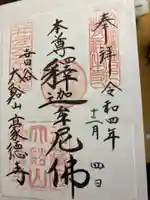 奉拝 令和四年
十二月 四日
本尊 釋迦牟尼佛
世田谷
大谿山 豪德寺